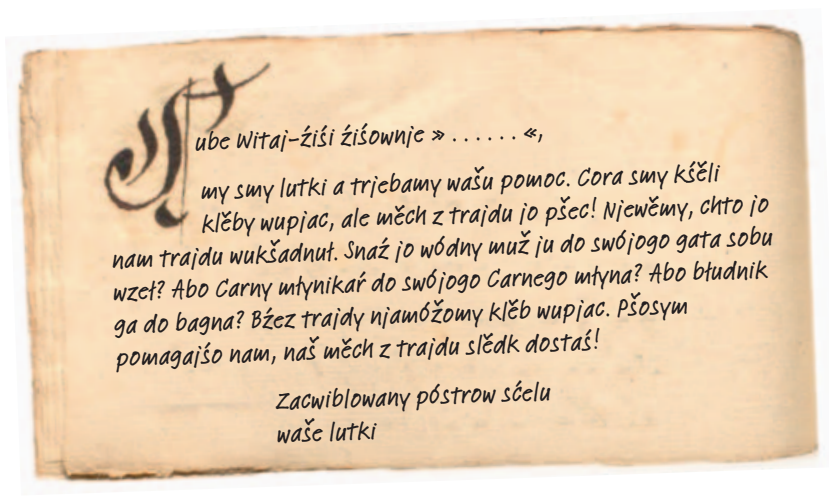 Lube Witaj-źiśi źiśownje » . . . . . . «,
my smy lutki a trjebamy wašu pomoc. Cora smy kśěli
klěby wupjac, ale měch z trajdu jo pšec! Njewěmy, chto jo
nam trajdu wukšadnuł. Snaź jo wódny muž ju do swójogo gata sobu
wzeł? Abo Carny młynikaŕ do swójogo Carnego młyna? Abo błudnik
ga do bagna? Bźez trajdy njamóžomy klěb wupjac. Pšosym
pomagajśo nam, naš měch z trajdu slědk dostaś!
Zacwiblowany póstrow sćelu
waše lutki